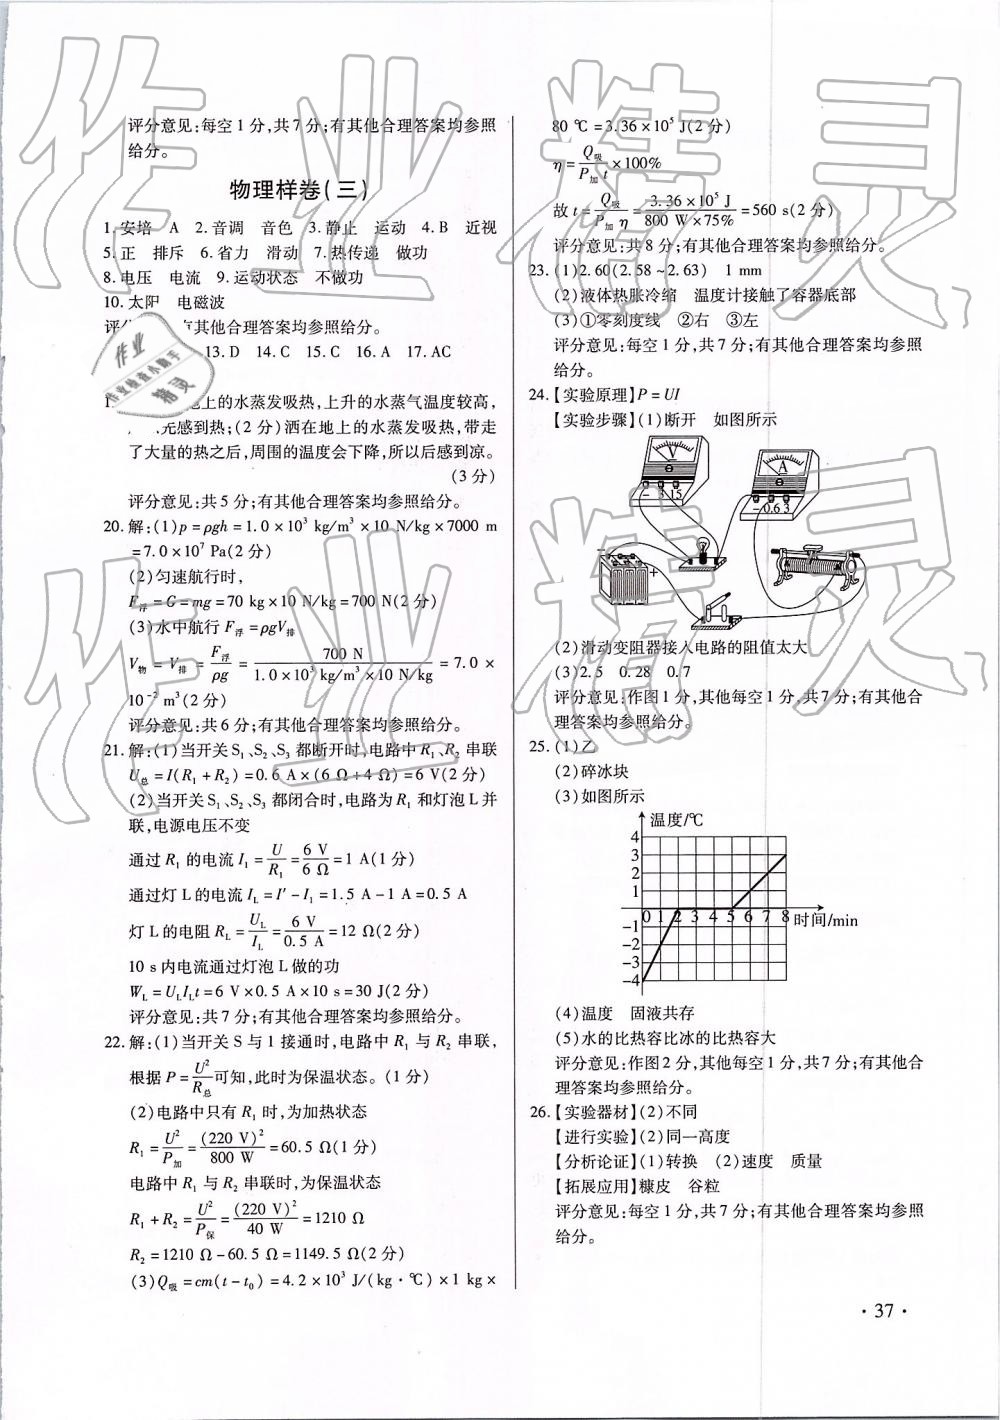 评分意见:每空1分,共7分;有其他合理答案均参照
给分。
物理样卷(三)
1.安培 A 2.音调 音色 3.静止 运动 4.B 近视
5.正 排斥 6.省力 滑动 7.热传递 做功
8.电压 电流 9.运动状态 不做功
10.太阳 电磁波
有其他合理答案均参照给分。
13.D 14.C 15.C 16.A 17.AC
地上的水蒸发吸热,上升的水蒸气温度较高,
感到热;(2分)洒在地上的水蒸发吸热,带走
了大量的热之后,周围的温度会下降,所以后感到凉。
(3分)
评分意见:共5分;有其他合理答案均参照给分。
20.解:(1)p=ρgh=1.0×10³ kg/m³×10 N/kg×7000 m
=7.0×10⁷ Pa(2分)
(2)匀速航行时,
F浮=G=mg=70 kg×10 N/kg=700 N(2分)
(3)水中航行 F浮=ρgV排
V物=V排=F浮/ρg=700 N/(1.0×10³ kg/m³×10 N/kg)=7.0×
10⁻² m³(2分)
评分意见:共6分;有其他合理答案均参照给分。
21.解:(1)当开关S₁、S₂、S₃都断开时,电路中R₁、R₂串联
U总=I(R₁+R₂)=0.6 A×(6 Ω+4 Ω)=6 V(2分)
(2)当开关S₁、S₂、S₃都闭合时,电路为R₁和灯泡L并
联,电源电压不变
通过R₁的电流I₁=U/R₁=6 V/6 Ω=1 A(1分)
通过灯L的电流I_L=I′-I₁=1.5 A-1 A=0.5 A
灯L的电阻R_L=U_L/I_L=6 V/0.5 A=12 Ω(2分)
10 s内电流通过灯泡L做的功
W_L=U_L I_L t=6 V×0.5 A×10 s=30 J(2分)
评分意见:共7分;有其他合理答案均参照给分。
22.解:(1)当开关S与1接通时,电路中R₁与R₂串联,
根据P=U²/R总可知,此时为保温状态。(1分)
(2)电路中只有R₁时,为加热状态
R₁=U²/P加=(220 V)²/800 W=60.5 Ω(1分)
电路中R₁与R₂串联时,为保温状态
R₁+R₂=U²/P保=(220 V)²/40 W=1210 Ω
R₂=1210 Ω-60.5 Ω=1149.5 Ω(2分)
(3)Q吸=cm(t-t₀)=4.2×10³ J/(kg·℃)×1 kg×
80 ℃=3.36×10⁵ J(2分)
η=Q吸/(P加 t)×100%
故t=Q吸/(P加 η)=3.36×10⁵ J/(800 W×75%)=560 s(2分)
评分意见:共8分;有其他合理答案均参照给分。
23.(1)2.60(2.58~2.63) 1 mm
(2)液体热胀冷缩 温度计接触了容器底部
(3)①零刻度线 ②右 ③左
评分意见:每空1分,共7分;有其他合理答案均参照
给分。
24.【实验原理】P=UI
【实验步骤】(1)断开 如图所示
V
- 3 15
A
-0.6 3
- +
(2)滑动变阻器接入电路的阻值太大
(3)2.5 0.28 0.7
评分意见:作图1分,其他每空1分,共7分;有其他合
理答案均参照给分。
25.(1)乙
(2)碎冰块
(3)如图所示
温度/℃
4
3
2
1
0 1 2 3 4 5 6 7 8 时间/min
-1
-2
-3
-4
(4)温度 固液共存
(5)水的比热容比冰的比热容大
评分意见:作图2分,其他每空1分,共7分;有其他合
理答案均参照给分。
26.【实验器材】(2)不同
【进行实验】(2)同一高度
【分析论证】(1)转换 (2)速度 质量
【拓展应用】糠皮 谷粒
评分意见:每空1分,共7分;有其他合理答案均参照
给分。
·37·
作业精灵
作业
作业检查小助手
精灵